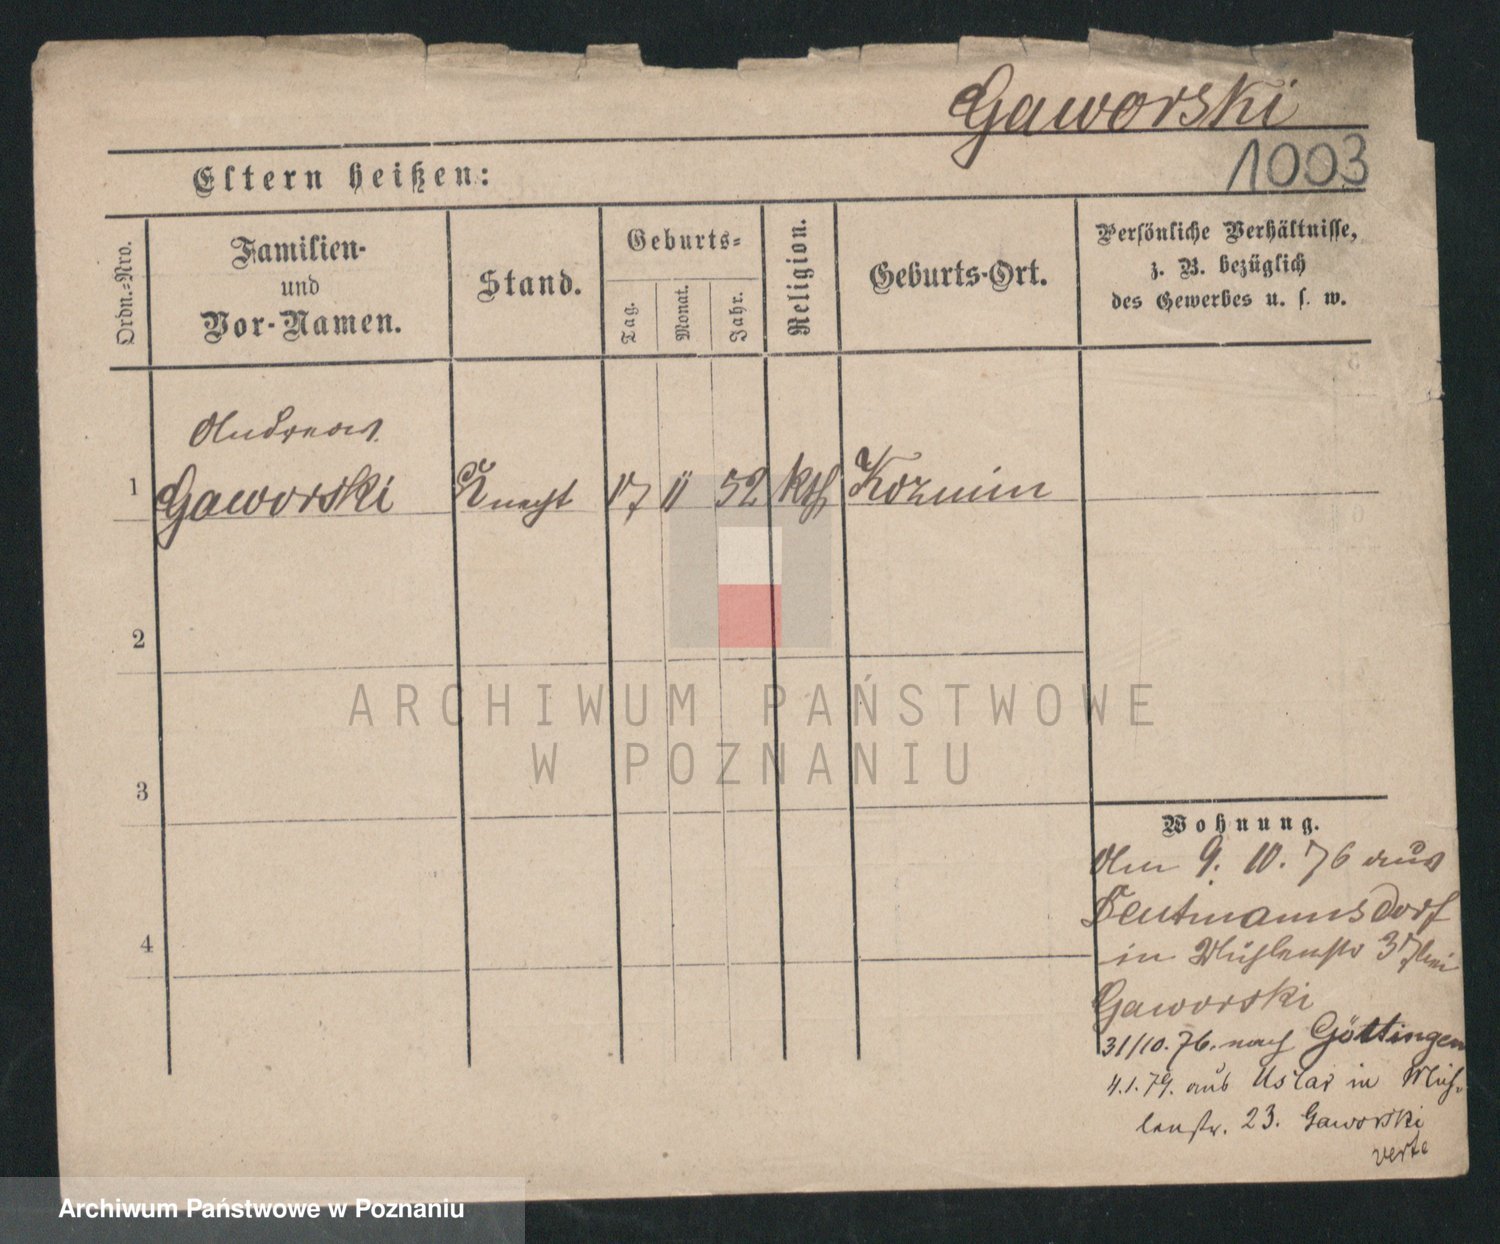 Gaworski
1003
Eltern heißen:
Ordn.-Nro.
Familien-
und
Vor-Namen.
Stand.
Geburts-
Tag.
Monat.
Jahr.
Religion.
Geburts-Ort.
Persönliche Verhältnisse,
z. B. bezüglich
des Gewerbes u. s. w.
Andreas
1 Gaworski Knecht 17 11 52 kth Kozmin
2
3
4
ARCHIWUM PAŃSTWOWE
W POZNANIU
Wohnung.
Am 9. 10. 76 aus
Deutmannsdorf
in Mühlenstr 37 bei
Gaworski
31/10. 76. nach Göttingen
4.1.79. aus Uslar in Müh-
lenstr. 23. Gaworski
verte
Archiwum Państwowe w Poznaniu